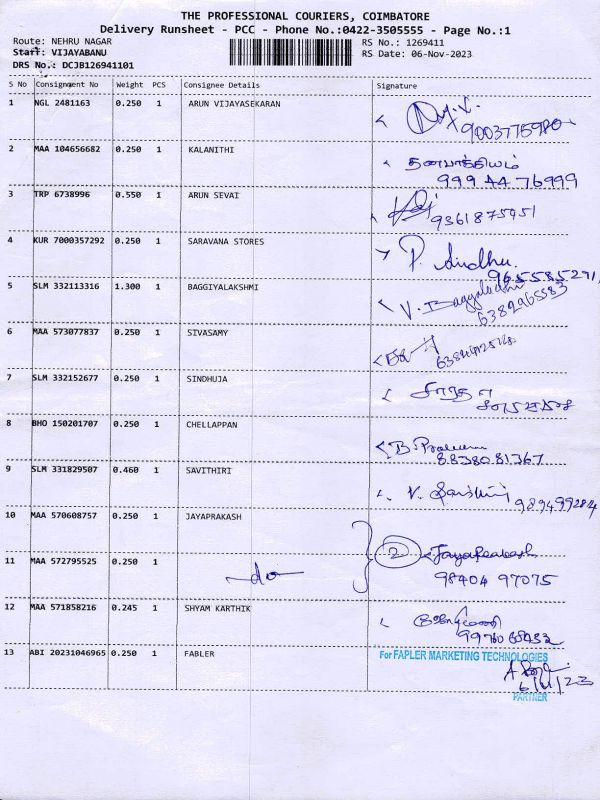 THE PROFESSIONAL COURIERS, COIMBATORE
Delivery Runsheet - PCC - Phone No.:0422-3505555 - Page No.:1
Route: NEHRU NAGAR RS No.: 1269411
Staff: VIJAYABANU RS Date: 06-Nov-2023
DRS No.: DCJB126941101
S No Consignment No Weight PCS Consignee Details Signature
1 NGL 2481163 0.250 1 ARUN VIJAYASEKARAN
9003775980
2 MAA 104656682 0.250 1 KALANITHI
தனபாக்கியம்
999 44 76999
3 TRP 6738996 0.550 1 ARUN SEVAI
9361875951
4 KUR 7000357292 0.250 1 SARAVANA STORES
P. Sindhu
965585291
5 SLM 332113316 1.300 1 BAGGIYALAKSHMI
V. Baggyalakshmi
6382965583
6 MAA 573077837 0.250 1 SIVASAMY
7 SLM 332152677 0.250 1 SINDHUJA
8 BHO 150201707 0.250 1 CHELLAPPAN
8838081367
9 SLM 331829507 0.460 1 SAVITHIRI
10 MAA 570608757 0.250 1 JAYAPRAKASH
2 Jayaprakash
11 MAA 572795525 0.250 1 do
98404 97075
12 MAA 571858216 0.245 1 SHYAM KARTHIK
13 ABI 20231046965 0.250 1 FABLER
For FAPLER MARKETING TECHNOLOGIES
6/11/23
PARTNER